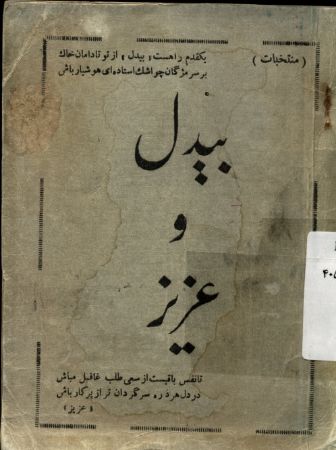 ( منتخبات )
یکقدم راهست « بیدل » از تو تا دامان خاك
بر سر مژگان چو اشك استاده‌ای هوشیار باش
بیدل
و
عزیز
تا نفس باقیست از سعی طلب غافل مباش
در دل هر ذره سرگردان تر از پرکار باش
« عزیز »